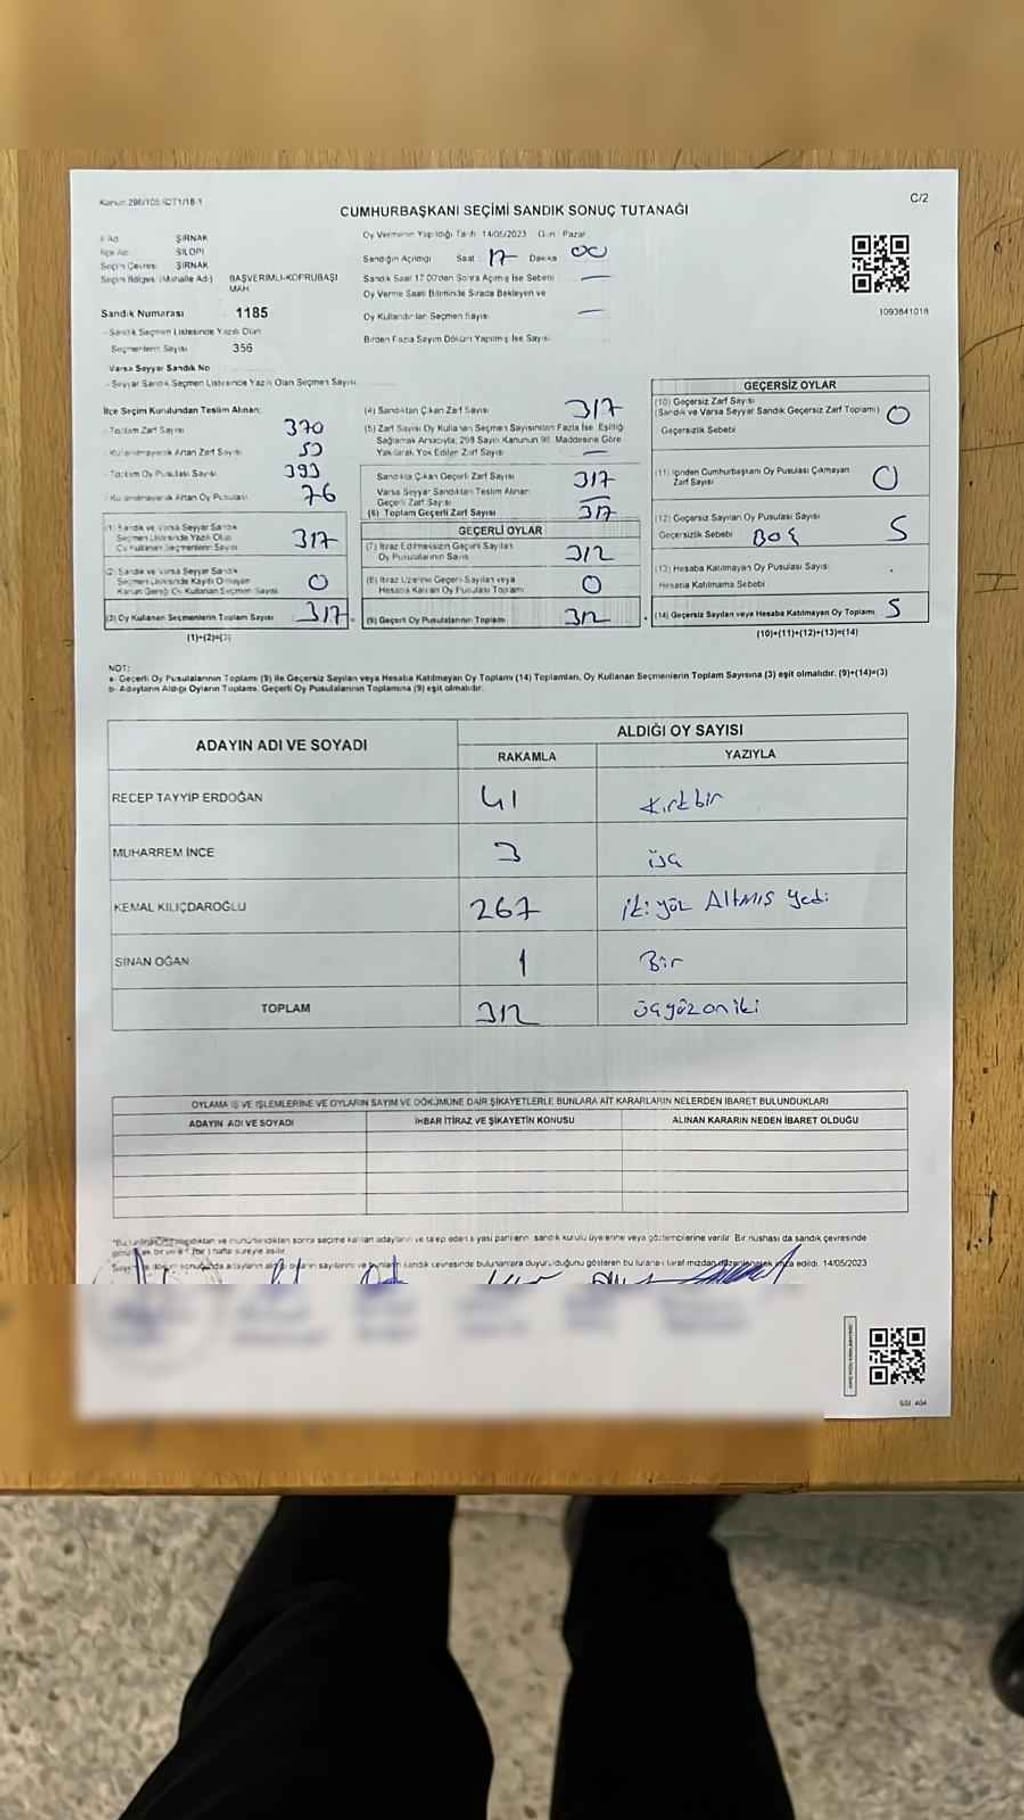 C/2
CUMHURBAŞKANI SEÇİMİ SANDIK SONUÇ TUTANAĞI
İl Adı ŞIRNAK
İlçe Adı SİLOPİ
Seçim Çevresi ŞIRNAK
Seçim Bölgesi (Mahalle Adı) BAŞVERİMLİ-KÖPRÜBAŞI MAH.
Sandık Numarası 1185
- Sandık Seçmen Listesinde Yazılı Olan
Seçmenlerin Sayısı 356
Varsa Seyyar Sandık No
- Seyyar Sandık Seçmen Listesinde Yazılı Olan Seçmen Sayısı
Oy Vermenin Yapıldığı Tarih 14/05/2023 Gün: Pazar
Sandığın Açıldığı Saat 17 Dakika 00
Sandık Saat 17.00'den Sonra Açılmış İse Sebebi —
Oy Verme Saati Bitiminde Sırada Bekleyen ve
Oy Kullandırılan Seçmen Sayısı —
Birden Fazla Sayım Döküm Yapılmış İse Sayısı
1093841018
İlçe Seçim Kurulundan Teslim Alınan:
- Toplam Zarf Sayısı 370
- Kullanılmayarak Artan Zarf Sayısı 53
- Toplam Oy Pusulası Sayısı 393
- Kullanılmayarak Artan Oy Pusulası 76
(1) Sandık ve Varsa Seyyar Sandık
Seçmen Listesinde Yazılı Olan
Oy Kullanan Seçmenlerin Sayısı 317
(2) Sandık ve Varsa Seyyar Sandık
Seçmen Listesinde Kayıtlı Olmayan
Kanun Gereği Oy Kullanan Seçmen Sayısı 0
(3) Oy Kullanan Seçmenlerin Toplam Sayısı 317
(1)+(2)=(3)
(4) Sandıktan Çıkan Zarf Sayısı 317
(5) Zarf Sayısı Oy Kullanan Seçmen Sayısından Fazla İse, Eşitliği
Sağlamak Amacıyla, 298 Sayılı Kanunun 98. Maddesine Göre
Yakılarak Yok Edilen Zarf Sayısı —
Sandıkta Çıkan Geçerli Zarf Sayısı 317
Varsa Seyyar Sandıktan Teslim Alınan
Geçerli Zarf Sayısı —
(6) Toplam Geçerli Zarf Sayısı 317
GEÇERLİ OYLAR
(7) İtiraz Edilmeksizin Geçerli Sayılan
Oy Pusulalarının Sayısı 312
(8) İtiraz Üzerine Geçerli Sayılan veya
Hesaba Katılan Oy Pusulası Toplamı 0
(9) Geçerli Oy Pusulalarının Toplamı 312
GEÇERSİZ OYLAR
(10) Geçersiz Zarf Sayısı
(Sandık ve Varsa Seyyar Sandık Geçersiz Zarf Toplamı) 0
Geçersizlik Sebebi
(11) İçinden Cumhurbaşkanı Oy Pusulası Çıkmayan
Zarf Sayısı 0
(12) Geçersiz Sayılan Oy Pusulası Sayısı 5
Geçersizlik Sebebi BOŞ
(13) Hesaba Katılmayan Oy Pusulası Sayısı
Hesaba Katılmama Sebebi
(14) Geçersiz Sayılan veya Hesaba Katılmayan Oy Toplamı 5
(10)+(11)+(12)+(13)=(14)
NOT:
a- Geçerli Oy Pusulalarının Toplamı (9) ile Geçersiz Sayılan veya Hesaba Katılmayan Oy Toplamı (14) Toplamları, Oy Kullanan Seçmenlerin Toplam Sayısına (3) eşit olmalıdır. (9)+(14)=(3)
b- Adayların Aldığı Oyların Toplamı, Geçerli Oy Pusulalarının Toplamına (9) eşit olmalıdır.
ADAYIN ADI VE SOYADI
ALDIĞI OY SAYISI
RAKAMLA YAZIYLA
RECEP TAYYİP ERDOĞAN 41 Kırkbir
MUHARREM İNCE 3 üç
KEMAL KILIÇDAROĞLU 267 iki yüz Altmış Yedi
SİNAN OĞAN 1 Bir
TOPLAM 312 üçyüzoniki
OYLAMA İŞ VE İŞLEMLERİNE VE OYLARIN SAYIM VE DÖKÜMÜNE DAİR ŞİKAYETLERLE BUNLARA AİT KARARLARIN NELERDEN İBARET BULUNDUKLARI
ADAYIN ADI VE SOYADI İHBAR İTİRAZ VE ŞİKAYETİN KONUSU ALINAN KARARIN NEDEN İBARET OLDUĞU
sonra seçime katılan adayların ve talep eden siyasi partilerin sandık kurulu üyelerine veya gözlemcilerine verilir. Bir nüshası da sandık çevresinde
hafta süreyle asılır.
sandık çevresinde bulunanlara duyurulduğunu gösteren bu tutanak tarafımızdan düzenlenerek imza edildi. 14/05/2023